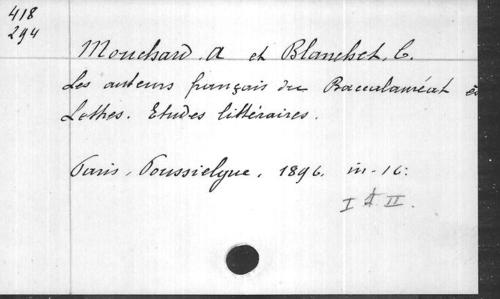 418
294
Mouchard, A et Blanchet, C.
Les auteurs français du Baccalauréat ès
Lettres. Etudes littéraires.
Paris, Poussielgue, 1896. in-16.
I & II.